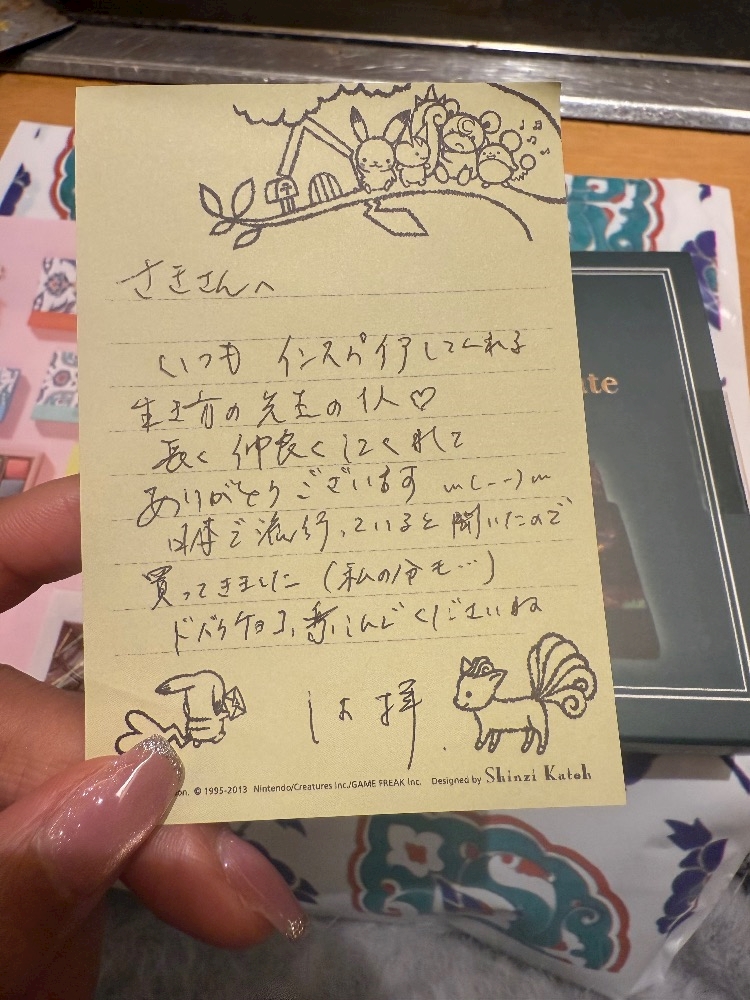 さきさんへ
いつも インスパイアしてくれる
生き方の先生の1人♡
長く 仲良くしてくれて
ありがとうございます m(--)m
日本で流行っていると聞いたので
買ってきました (私の分も…)
ドバイチョコ、楽しんでくださいね
しほ 拝.
on. © 1995-2013 Nintendo/Creatures Inc./GAME FREAK Inc. Designed by Shinzi Katoh
ate